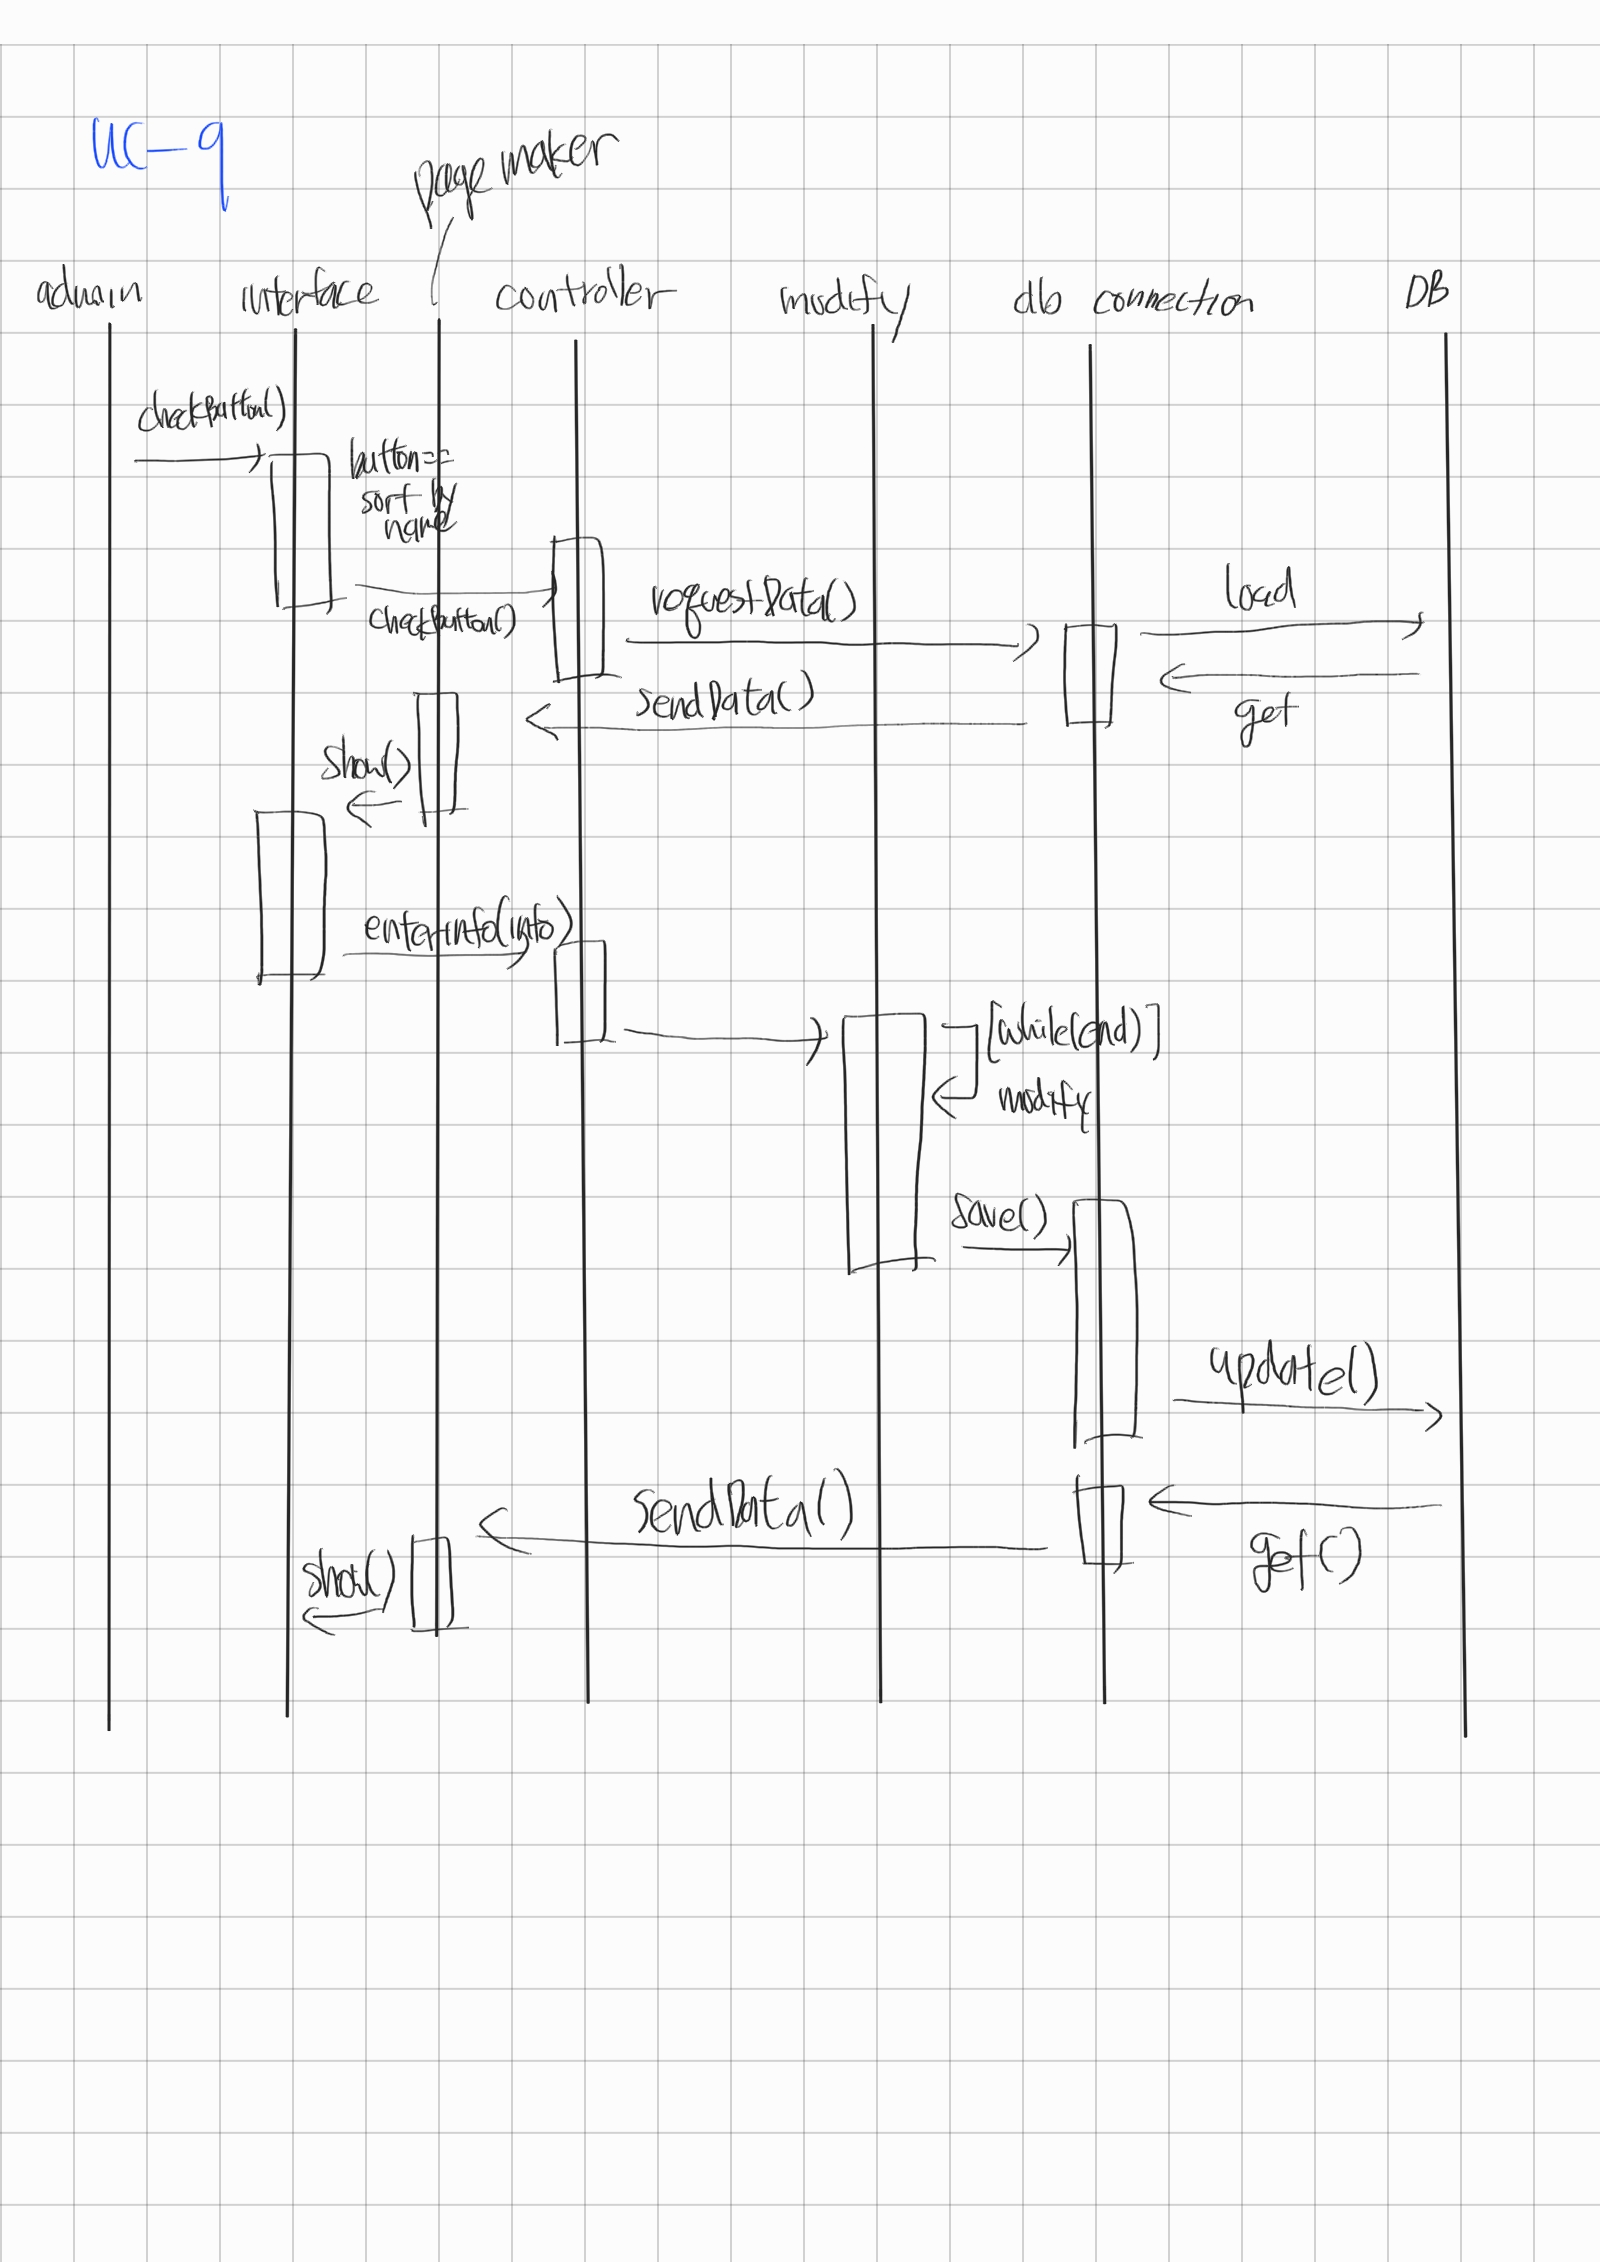 UC-9
page maker
admin interface controller modify db connection DB
checkButton()
button==
sort by
name
checkButton()
requestData()
load
sendData()
get
show()
enterinfo(info)
[while(end)]
modify
save()
update()
sendData()
get()
show()